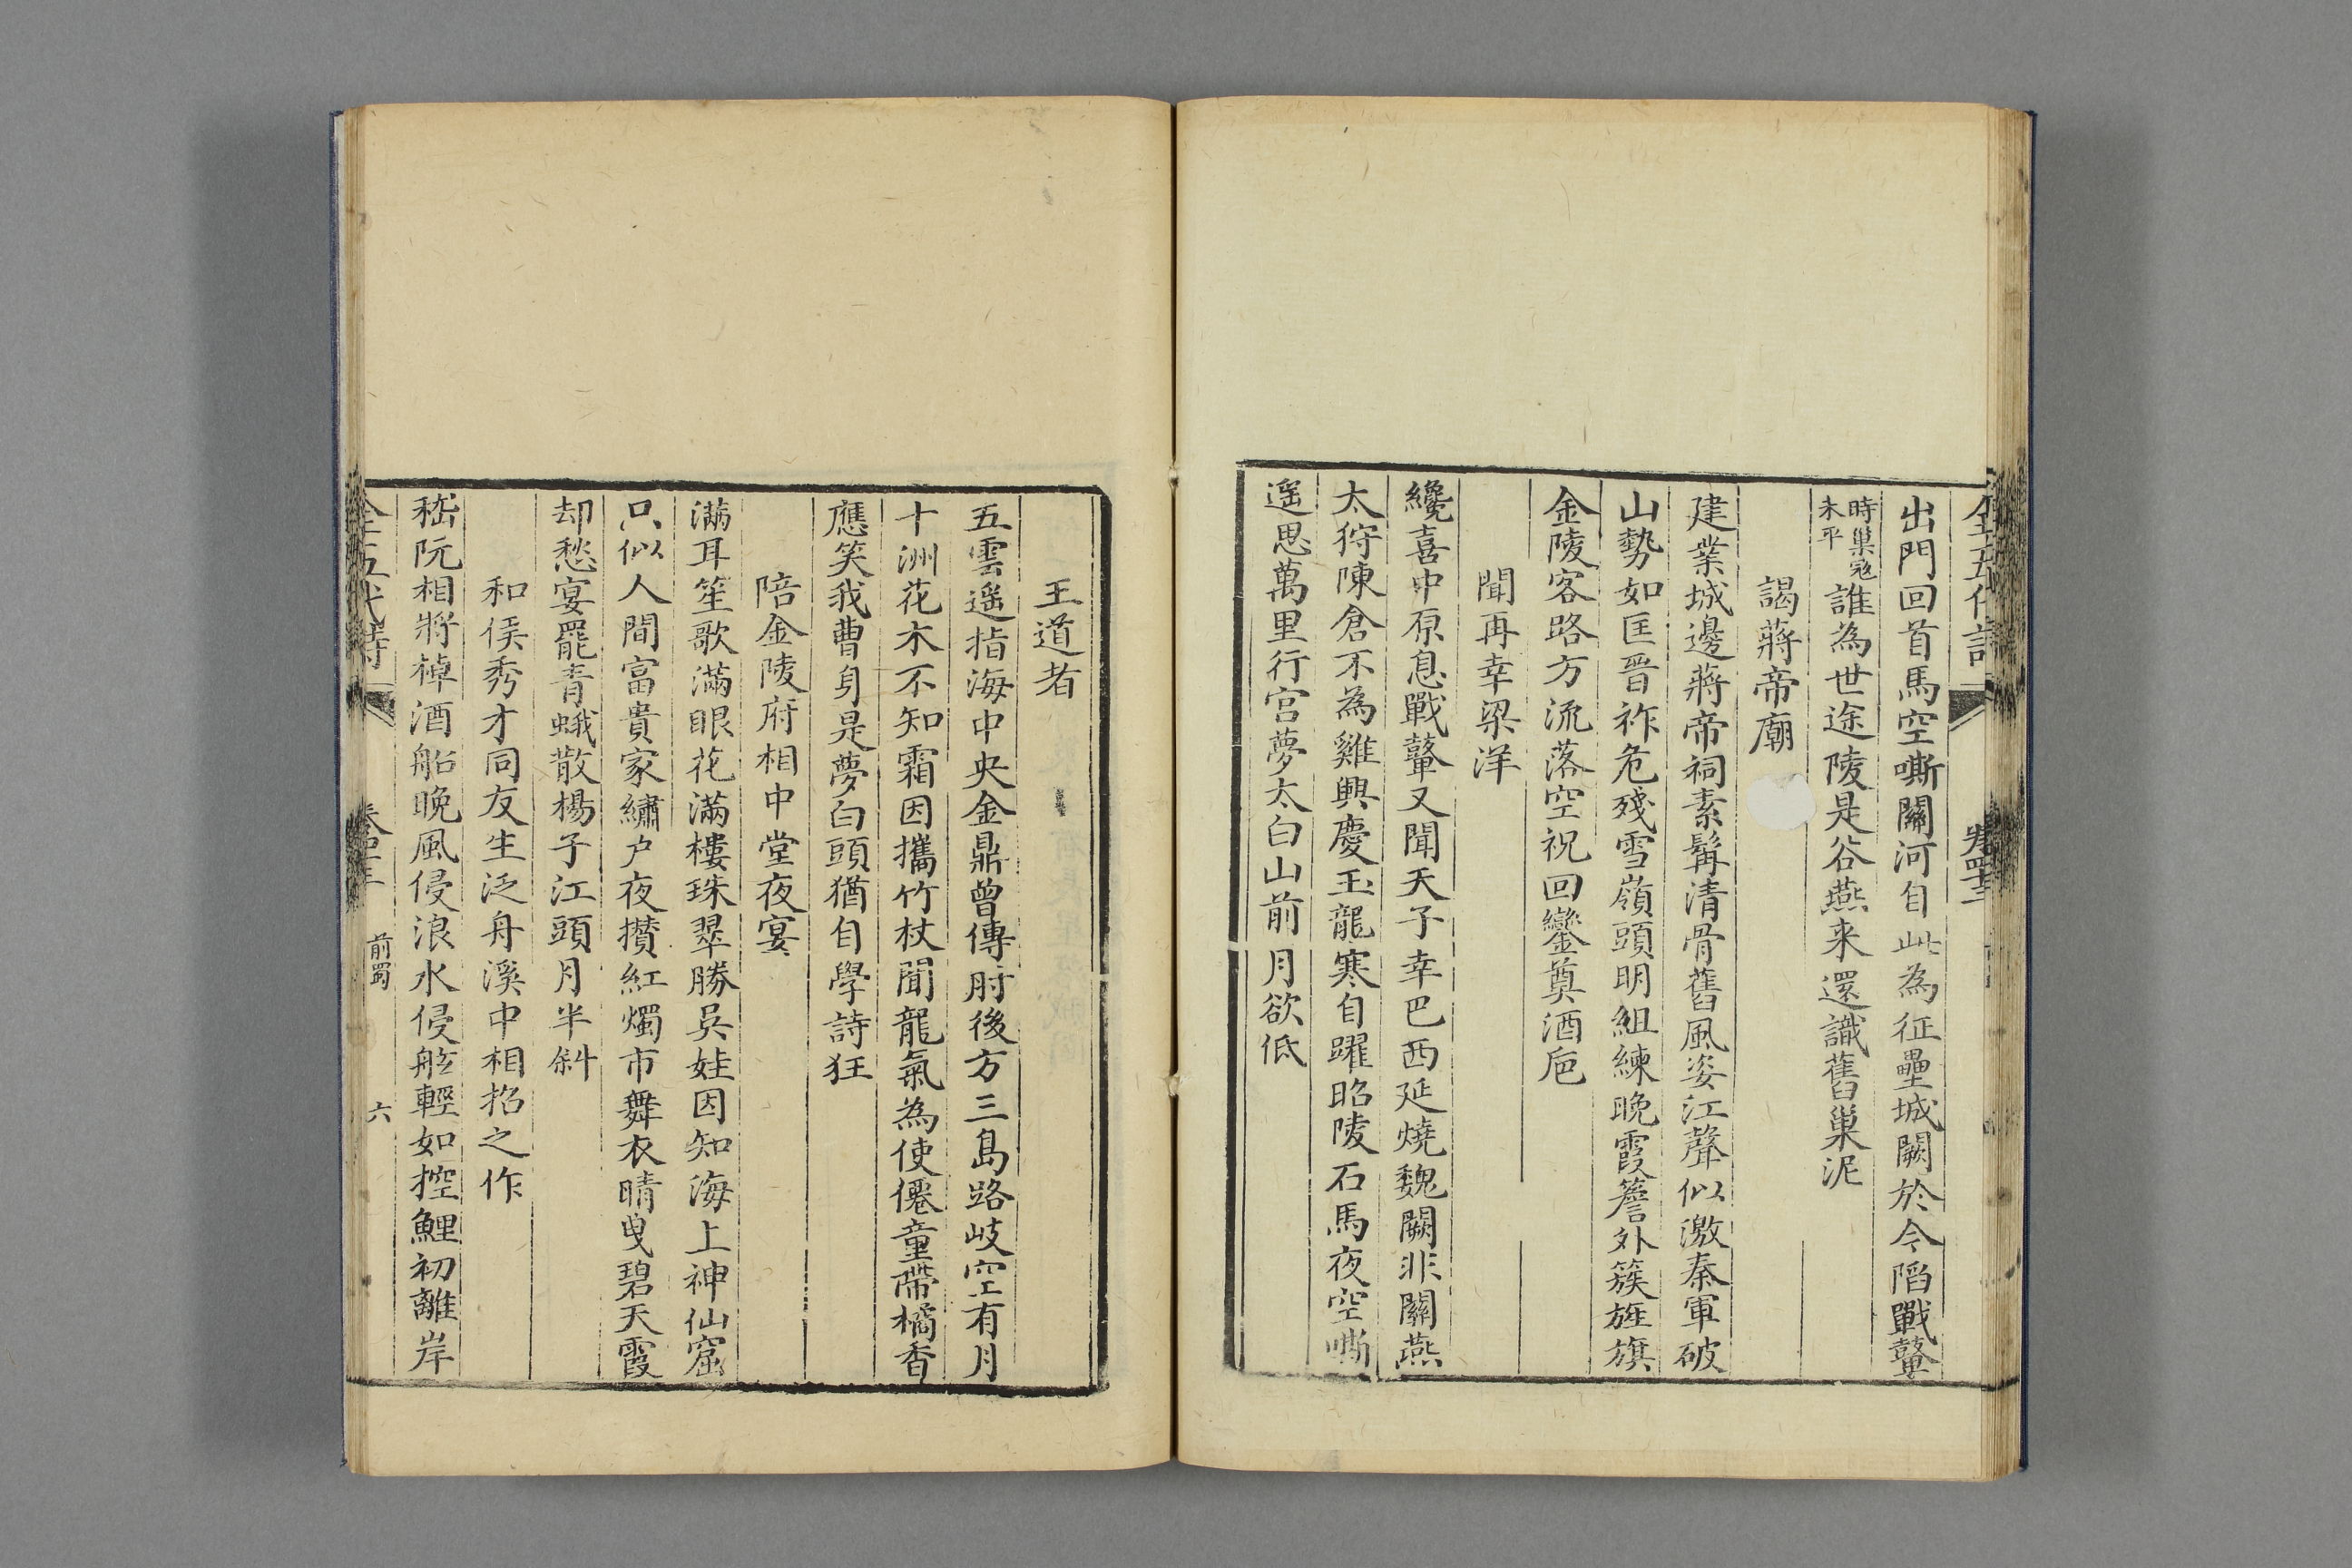 全五代詩
出門回首馬空嘶關河自此為征壘城闕於今陷戰鼙
時巢寇未平誰為世途陵是谷燕来還識舊巢泥
謁蔣帝廟
建業城邊蔣帝祠素髯清骨舊風姿江聲似激秦軍破
山勢如匡晋祚危殘雪嶺頭明組練晚霞簷外簇旌旗
金陵客路方流落空祝回鑾奠酒巵
聞再幸梁洋
纔喜中原息戰鼙又聞天子幸巴西延燒魏闕非關燕
太狩陳倉不為雞興慶玉龍寒自躍昭陵石馬夜空嘶
遥思萬里行宮夢太白山前月欲低
王道者
五雲遥指海中央金鼎曾傳肘後方三島路岐空有月
十洲花木不知霜因攜竹杖聞龍氣為使僊童帶橘香
應笑我曹身是夢白頭猶自學詩狂
陪金陵府相中堂夜宴
滿耳笙歌滿眼花滿樓珠翠勝吳娃因知海上神仙窟
只似人間富貴家繡户夜攢紅燭市舞衣晴曳碧天霞
却愁宴罷青蛾散楊子江頭月半斜
和侯秀才同友生泛舟溪中相招之作
嵇阮相將棹酒船晚風侵浪水侵舷輕如控鯉初離岸
全五代詩 前蜀 六